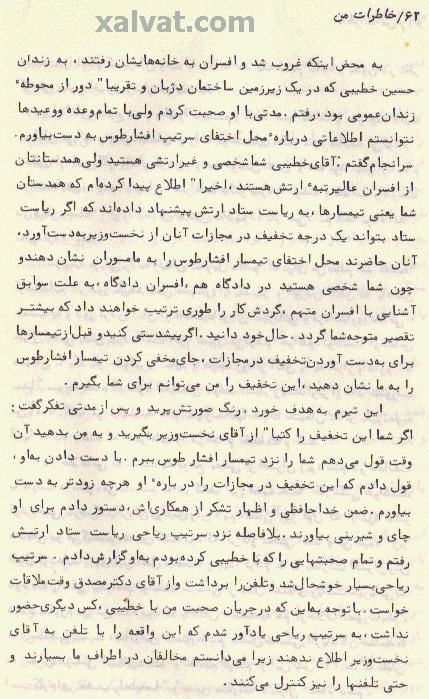 xalvat.com
۶۲/خاطرات من
به محض اینکه غروب شد و افسران به خانه‌هایشان رفتند ، به زندان
حسین خطیبی که در یک زیرزمین ساختمان دژبان و تقریبا" دور از محوطهٔ
زندان‌عمومی بود ،رفتم . مدتی‌با او صحبت کردم ولی‌با تمام‌وعده ووعیدها
نتوانستم اطلاعاتی دربارهٔ محل اختفای سرتیپ افشارطوس به دست‌بیاورم.
سرانجام‌گفتم :آقای‌خطیبی شماشخصی و غیرارتشی هستید ولی‌همدستانتان
از افسران عالیرتبهٔ ارتش هستند ،اخیرا" اطلاع پیدا کرده‌ام که همدستان
شما یعنی تیمسارها ،به ریاست ستاد ارتش پیشنهاد داده‌اند که اگر ریاست
ستاد بتواند یک درجه تخفیف در مجازات آنان از نخست‌وزیربه‌دست‌آورد،
آنان حاضرند محل اختفای تیمسار افشارطوس را به مامــوران نشان دهندو
چون شما شخصی هستید در دادگاه هم ،افسران دادگاه ،به علت سوابق
آشنایی با افسران متهم ،گردش‌کار را طوری ترتیب خواهند داد که بیشتــر
تقصیر متوجه‌شما گردد .حال‌خود دانید .اگرپیشدستی کنیدو قبل‌ازتیمسارها
برای به‌دست آوردن‌تخفیف درمجازات ،جای‌مخفی کردن تیمسار افشارطوس
را به ما نشان دهید ،این تخفیف را من می‌توانم برای شما بگیرم .
این تیرم به‌هدف خورد . رنگ صورتش‌پرید و پس‌ازمدتی تفکرگفت :
اگر شما این تخفیف را کتبا" از آقای نخست‌وزیر بگیرید و به من بدهید آن
وقت قول می‌دهم شما را نزد تیمسار افشار طوس ببرم .با دست دادن به‌او ،
قول دادم که این تخفیف در مجازات را در بارهٔ او هرچه زودتر به دست
بیاورم . ضمن خداحافظی و اظهار تشکر از همکاری‌اش ،دستور دادم برای او
چای و شیرینی بیاورند .بلافاصله نزد سرتیپ ریاحی ریاست ستاد ارتــش
رفتم و تمام صحبتهایی را که با خطیبی کرده‌بودم به‌اوگزارش‌دادم . سرتیپ
ریاحی‌بسیار خوشحال‌شد وتلفن‌را برداشت واز آقای دکترمصدق وقت‌ملاقات
خواست .باتوجه به‌این که درجریان صحبت من با خطیبی ،کس دیگری‌حضور
نداشت ،به سرتیپ ریاحی یادآور شدم که این واقعه را با تلفن به آقای
نخست‌وزیر اطلاع ندهند زیرا می‌دانستم مخالفان در اطراف ما بسیارند و
حتی تلفنها را نیز کنترل می‌کنند .